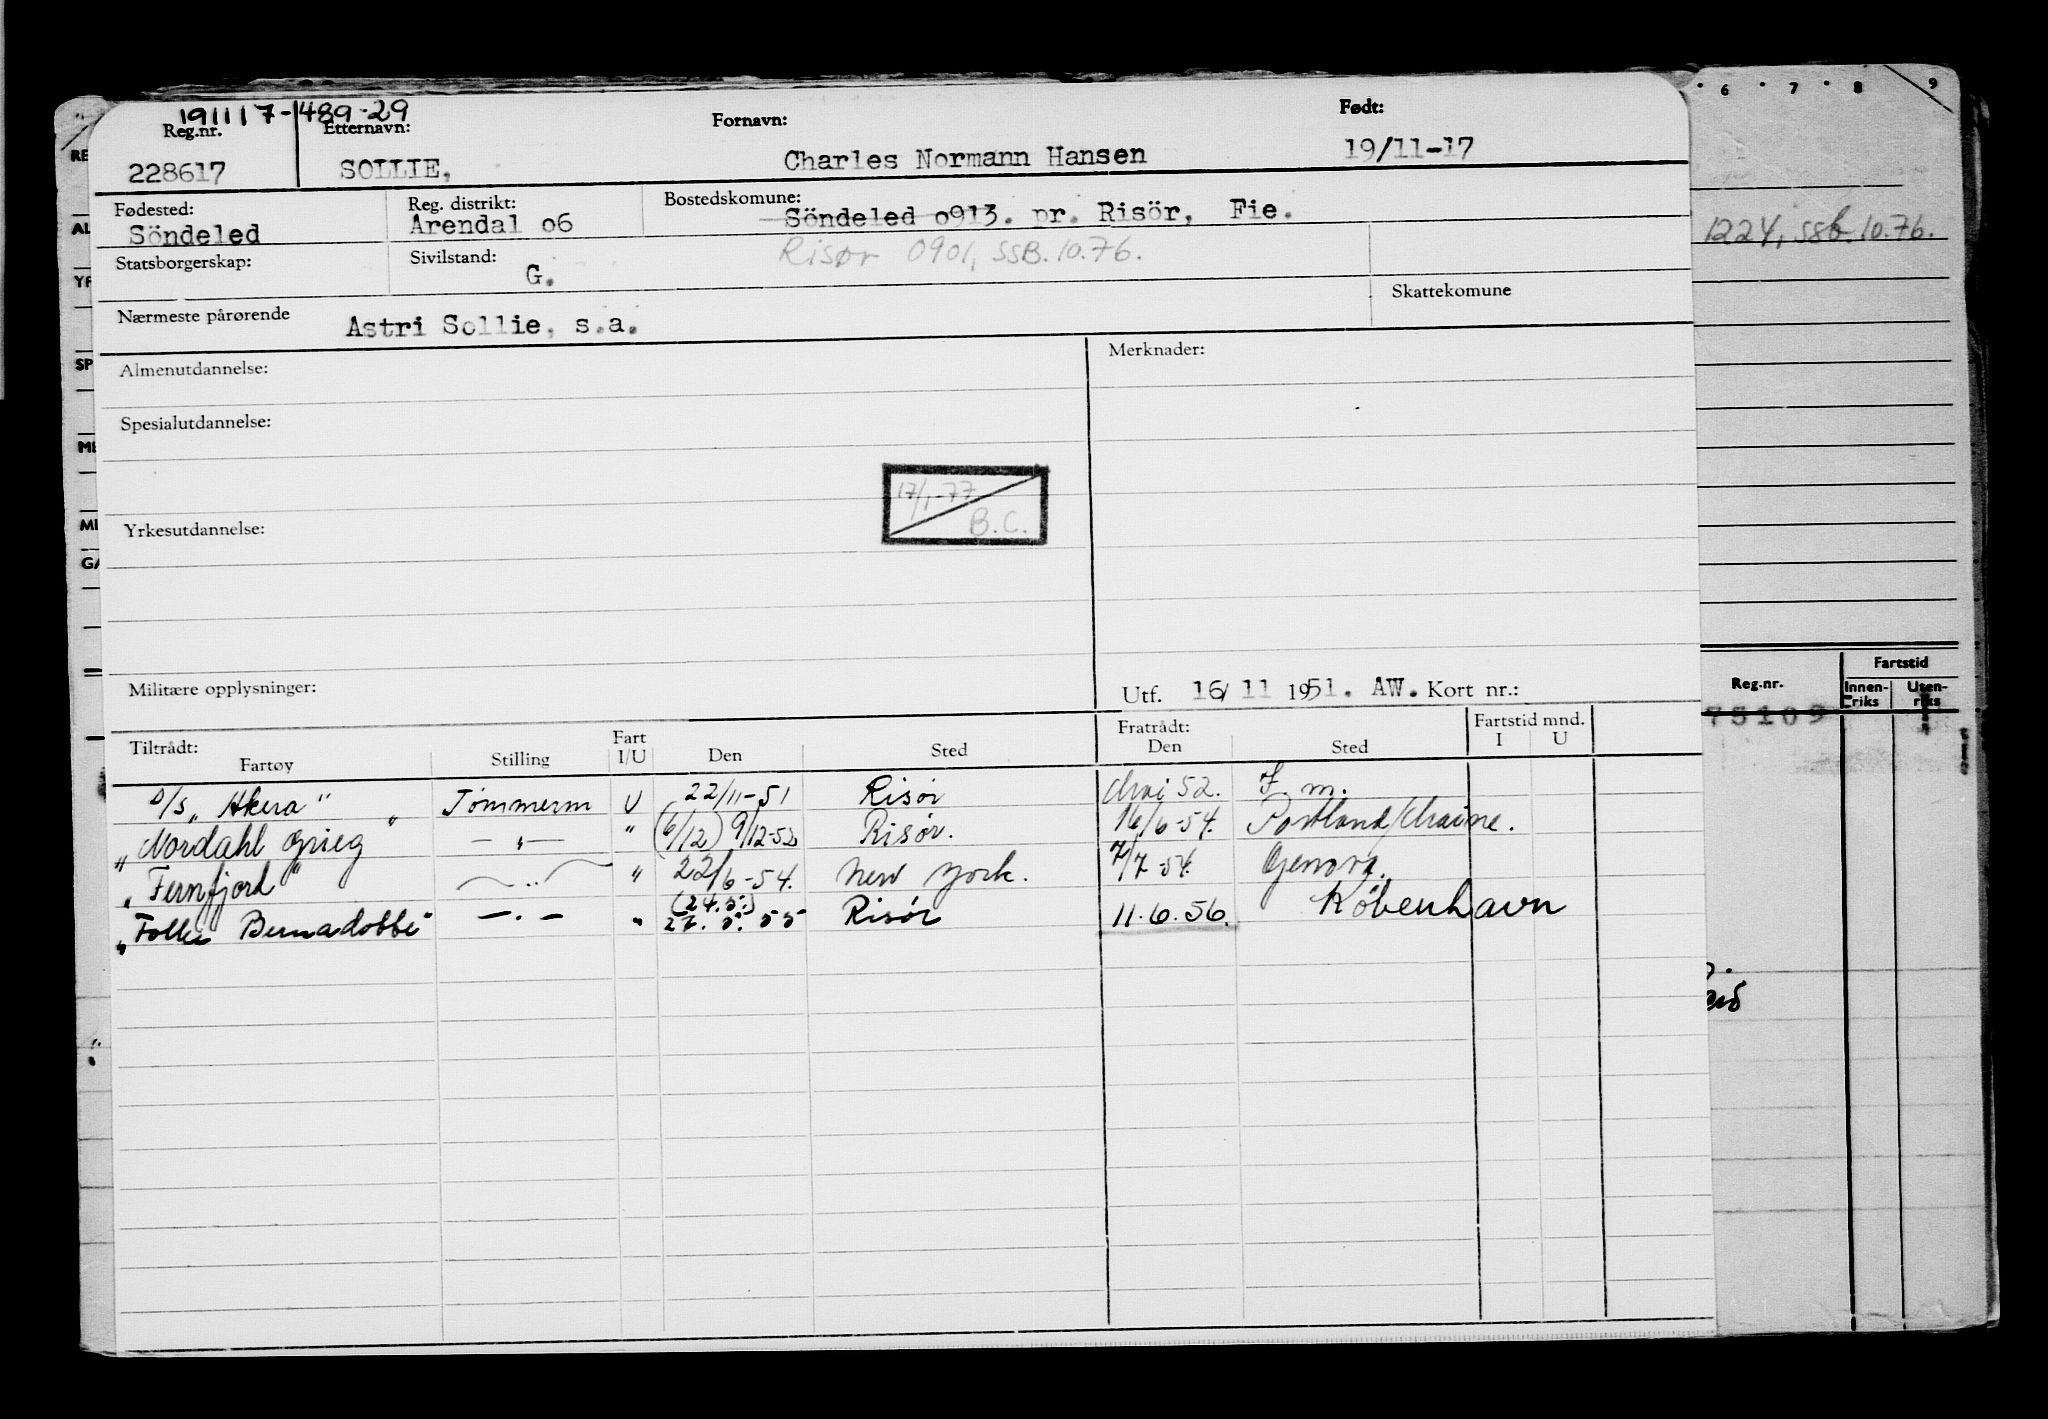 191117-489-29
Reg.nr. Etternavn: Fornavn: Født:
228617 SOLLIE, Charles Normann Hansen 19/11-17
Fødested: Reg. distrikt: Bostedskomune:
Söndeled Arendal o6 Söndeled o913. pr. Risör, Fie.
Statsborgerskap: Sivilstand: Risør 0901, SSB. 10.76.
G.
Skattekomune
Nærmeste pårørende Astri Sollie, s.a.
Almenutdannelse: Merknader:
Spesialutdannelse:
17/1-77
B.C.
Yrkesutdannelse:
Militære opplysninger: Utf. 16/11 1951. AW. Kort nr.:
Tiltrådt: Fratrådt: Fartstid mnd.
Fartøy Stilling Fart I/U Den Sted Den Sted I U
D/S „Akera" Tömmerm U 22/11-51 Risör Mai 52. F. m.
„Nordahl Grieg" —„— " (6/12) 9/12-52 Risör. 16/6-54. Portland/Maine.
„Fernfjord" —„— " 22/6-54. New York. 7/7-54. Genova.
(24.5.)
„Folke Bernadotte" —"— " 27. 5. 55 Risör 11.6.56. København
6 7 8 9
1224, SSB. 10.76.
Reg.nr. Fartstid
Innenriks Utenriks
75109
RE
AL
YR
SP
ME
MI
GA